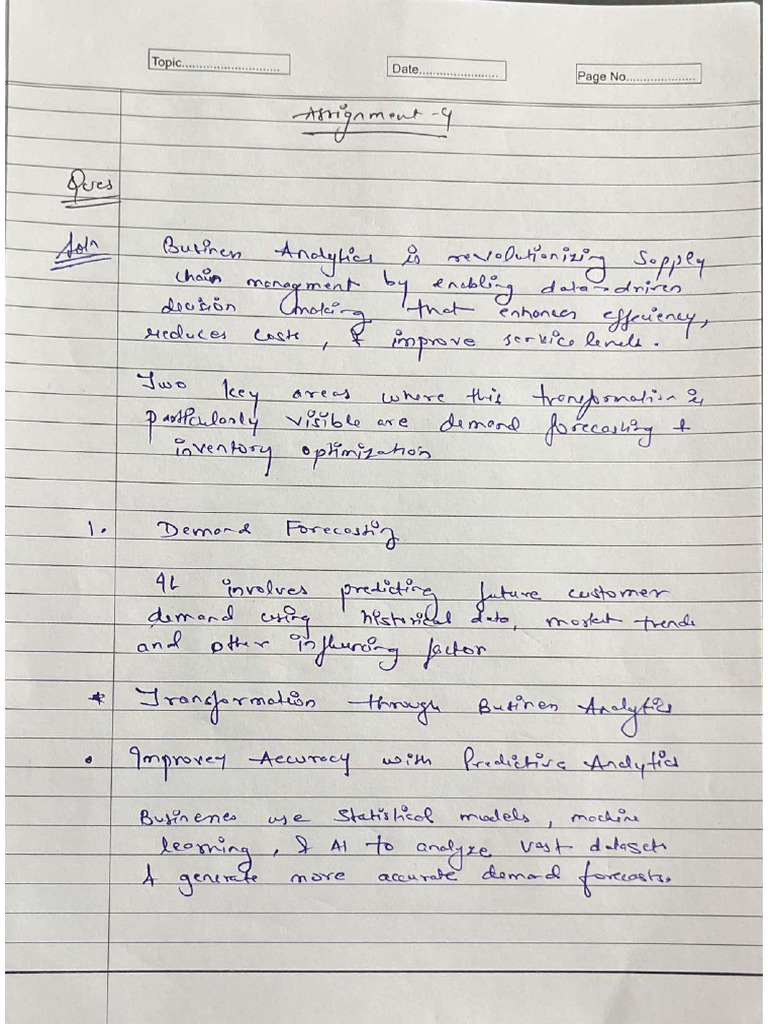 Topic............................
Date.......................
Page No....................
Assignment-4
Ques
Soln
Business Analytics is revolutionizing Supply
chain managment by enabling data-driven
decision making that enhances efficiency,
reduces costs, & improve service levels.
Two key areas where this transformation is
particularly visible are demand forecasting &
inventory optimization
1. Demand Forecasting
It involves predicting future customer
demand using historical data, market trends
and other influencing factor
* Transformation through Business Analytics
• Improvey Accuracy with Predictive Analytics
Businesses use statistical models, machine
learning, & AI to analyze vast datasets
& generate more accurate demand forecasts.